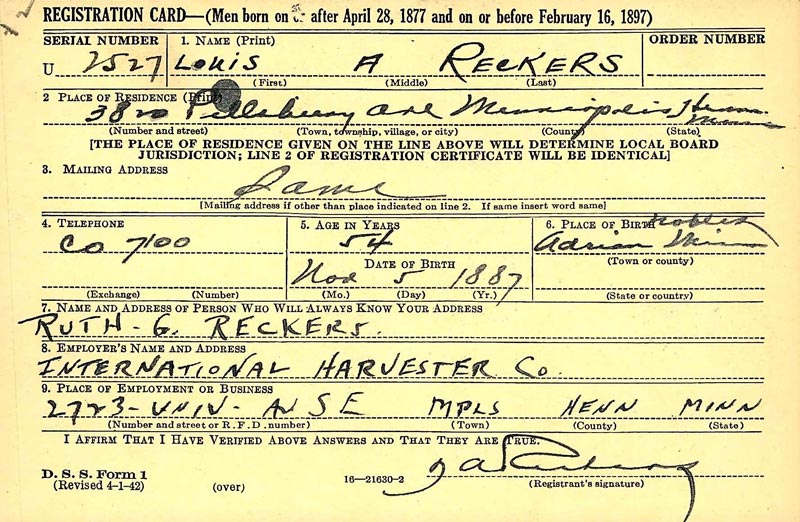 REGISTRATION CARD—(Men born on or after April 28, 1877 and on or before February 16, 1897)
SERIAL NUMBER 1. NAME (Print) ORDER NUMBER
U 2527 LOUIS A RECKERS
(First) (Middle) (Last)
2 PLACE OF RESIDENCE (Print)
3820 Pillsbury Ave Minneapolis Henn. Minn
(Number and street) (Town, township, village, or city) (County) (State)
[THE PLACE OF RESIDENCE GIVEN ON THE LINE ABOVE WILL DETERMINE LOCAL BOARD
JURISDICTION; LINE 2 OF REGISTRATION CERTIFICATE WILL BE IDENTICAL]
3. MAILING ADDRESS
Same
[Mailing address if other than place indicated on line 2. If same insert word same]
4. TELEPHONE 5. AGE IN YEARS 6. PLACE OF BIRTH Nobles
CO 7100 54 Adrian Minn
DATE OF BIRTH (Town or county)
Nov 5 1887
(Exchange) (Number) (Mo.) (Day) (Yr.) (State or country)
7. NAME AND ADDRESS OF PERSON WHO WILL ALWAYS KNOW YOUR ADDRESS
RUTH - G. RECKERS.
8. EMPLOYER'S NAME AND ADDRESS
INTERNATIONAL HARVESTER Co.
9. PLACE OF EMPLOYMENT OR BUSINESS
2723 - UNIV - AV S E MPLS HENN MINN
(Number and street or R. F. D. number) (Town) (County) (State)
I AFFIRM THAT I HAVE VERIFIED ABOVE ANSWERS AND THAT THEY ARE TRUE.
D. S. S. Form 1
(Revised 4-1-42) (over) 16—21630-2 (Registrant's signature)